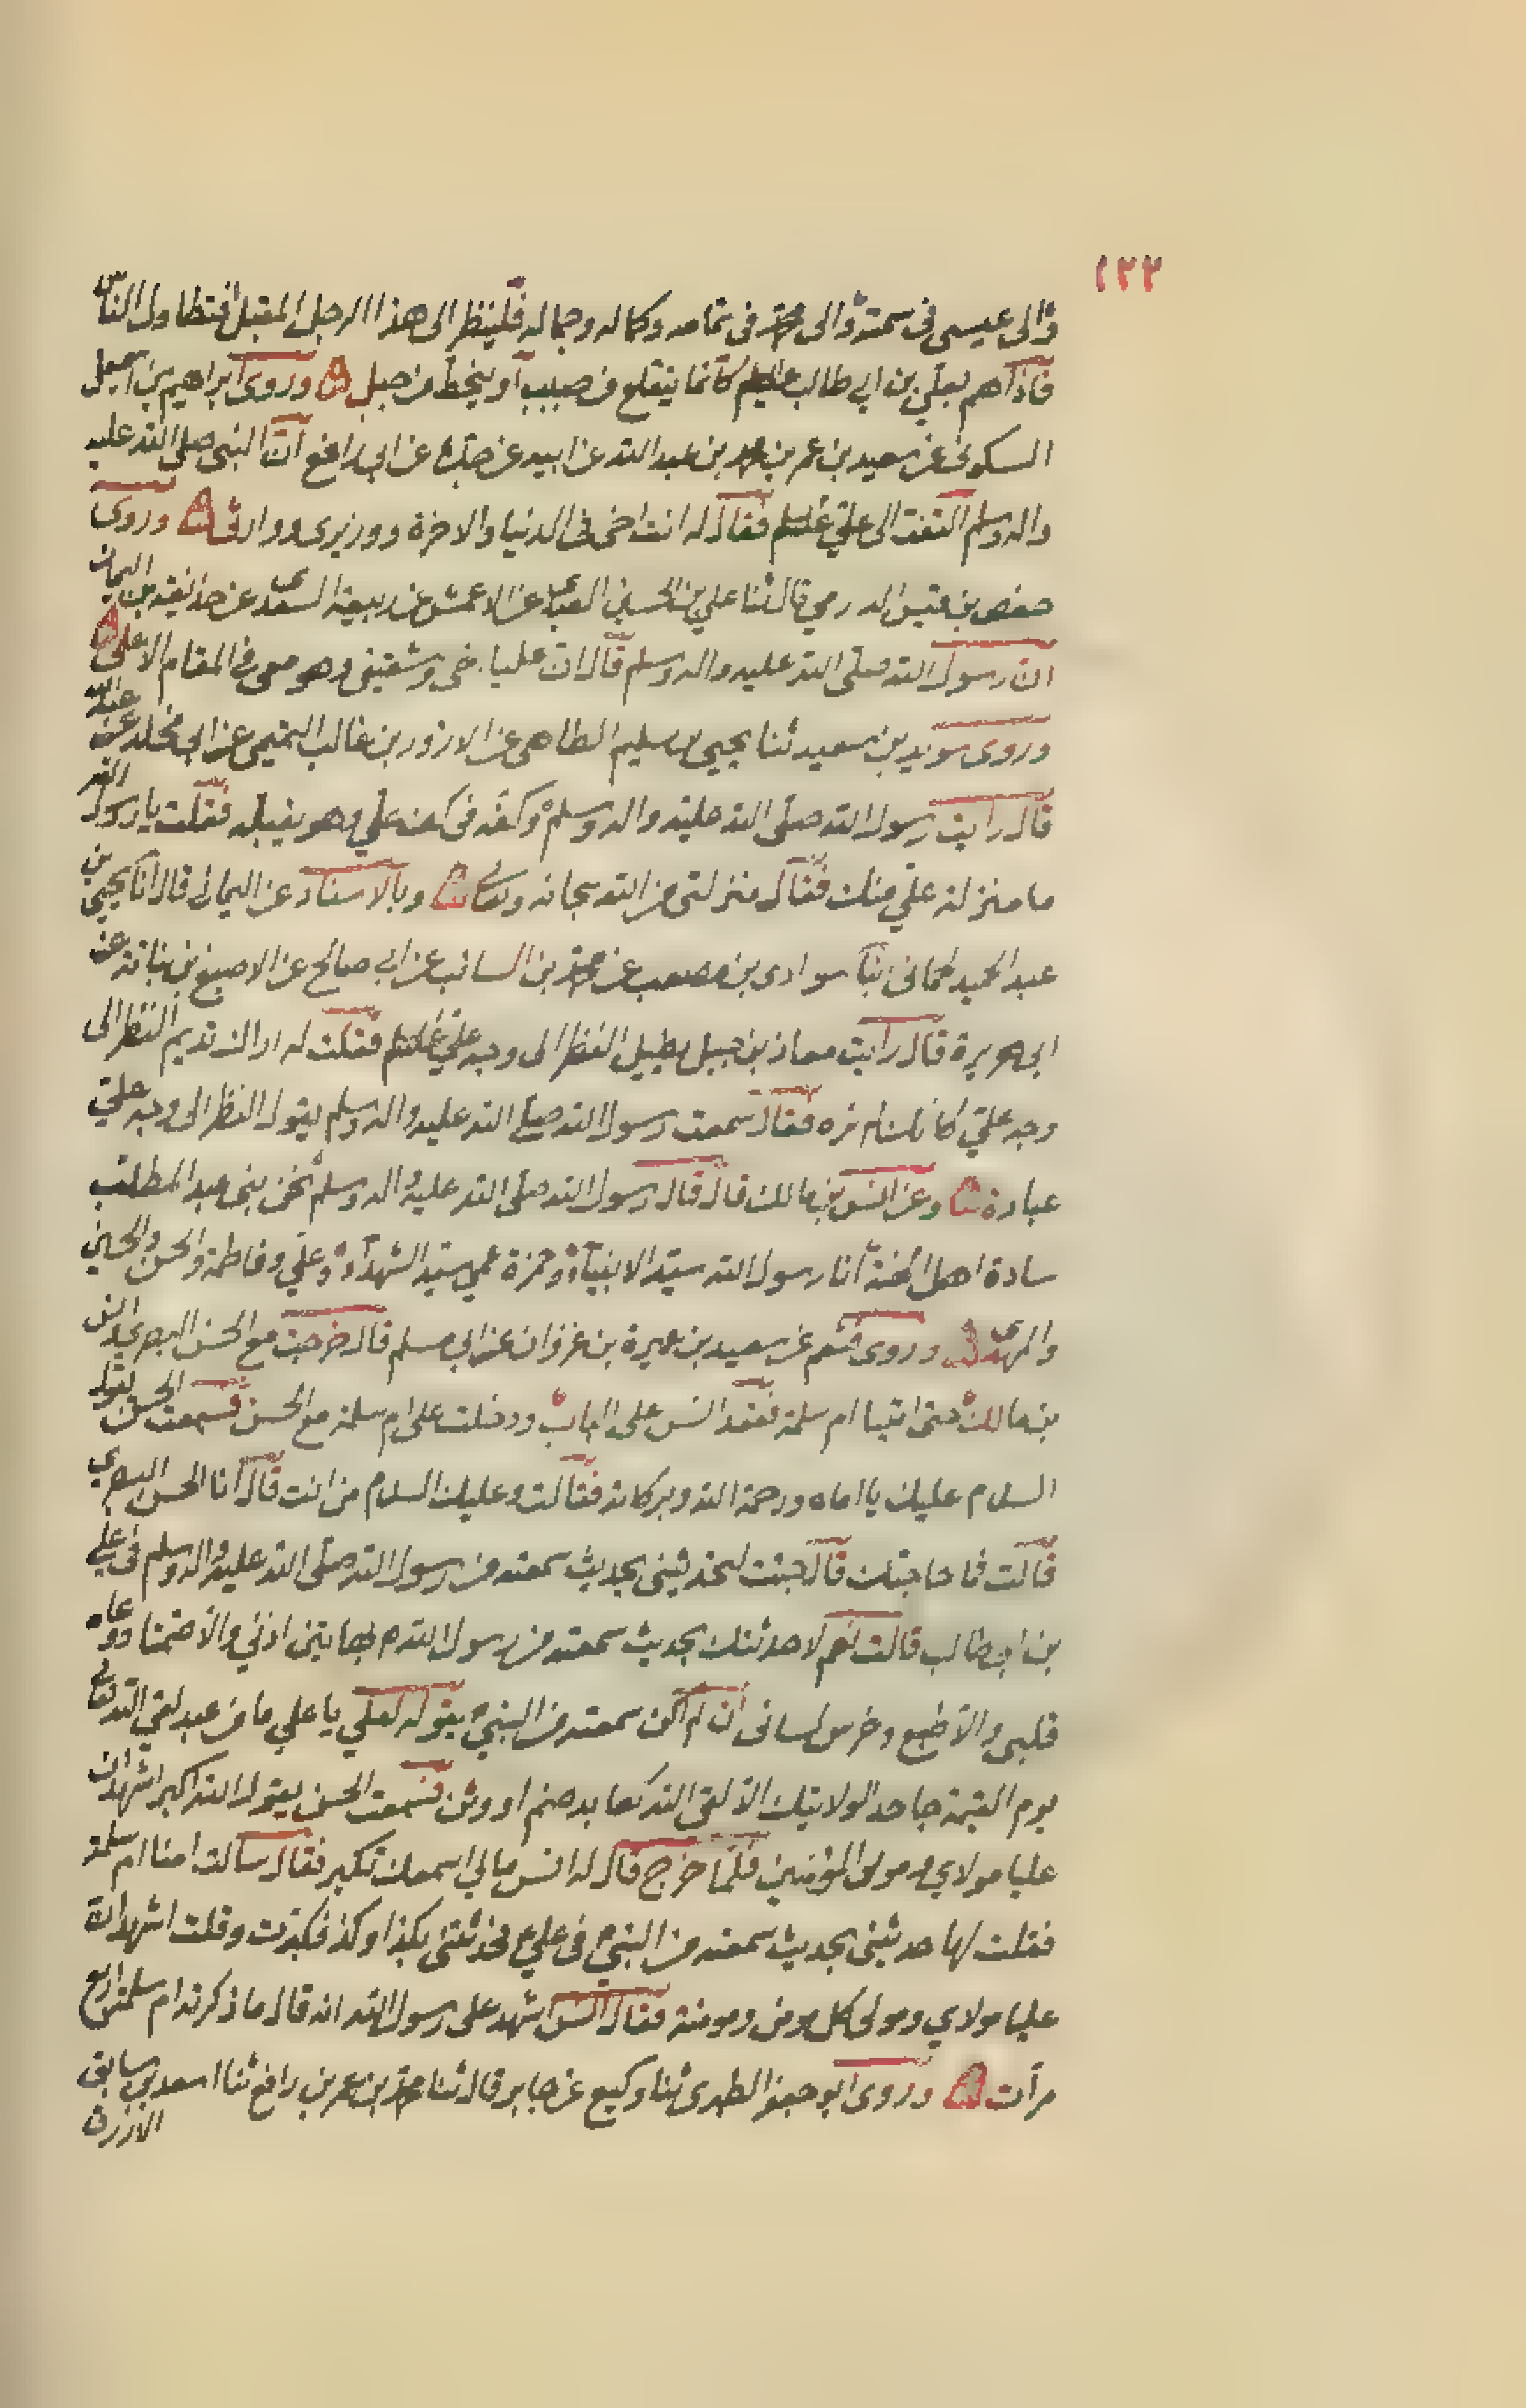 ١٢٣
والى عيسى فى سمته والى محمد فى تمامه وكماله وجماله فلينظر الى هذا الرجل المقبل فتطاول الناس
فاذا هم بعلي بن ابي طالب عليه السلم كانما ينقلع من صبب او ينحط من جبل وروى ابراهيم بن اسمعيل
السكونى عن سعيد بن عمر بن محمد بن عبد الله عن ابيه عن جده عن ابى رافع ان النبى صلى الله عليه
واله وسلم التفت الى علي فقال له انت اخى فى الدنيا والاخرة ووزيرى ووارثى وروى
حفص بن الدرمي قال ثنا علي بن الحسين عن الاعمش عن ربيعة السعدى عن حذيفة بن اليمان
ان رسول الله صلى الله عليه واله وسلم قال ان عليا اخى وشقيقى وهو معى فى المقام الاعلى
وروى سويد بن سعيد ثنا يحيى بن سليم الطائفى عن الازور بن غالب التميمى عن ابى مخلد عن عبد الله
قال رايت رسول الله صلى الله عليه واله وسلم وكفه فى كف علي وهو يقبله فقلت يا رسول الله
ما منزلة علي منك فقال منزلتى من الله سبحانه وتعالى وبالاسناد عن اليمان قال انا يحيى بن
عبد الحميد الحمانى انبا سوادى بن مصعب عن محمد بن السائب عن ابي صالح عن الاصبغ بن نباتة عن
ابى هريرة قال رايت معاذ بن جبل يطيل النظر الى وجه علي فقلت له اراك تديم النظر الى
وجه علي كانك لم تره فقال سمعت رسول الله صلى الله عليه واله وسلم يقول النظر الى وجه علي
عبادة وعن انس بن مالك قال قال رسول الله صلى الله عليه واله وسلم نحن بنى عبد المطلب
سادة اهل الجنة انا رسول الله سيد الانبياء وحمزة عمي سيد الشهداء وعلي وفاطمة والحسن والحسين
والمهدى وروى عن سعيد بن عميرة بن غزوان عن ابى مسلم قال خرجت مع الحسن البصرى وانس
بن مالك حتى اتينا ام سلمة فقعد انس على الباب ودخلت على ام سلمة مع الحسن فسمعت الحسن يقول
السلام عليك يا اماه ورحمة الله وبركاته فقالت وعليك السلام من انت قال انا الحسن البصري
قالت فما حاجتك قال جئت لتحدثينى بحديث سمعته من رسول الله صلى الله عليه واله وسلم فى علي
بن ابيطالب قالت نعم لاحدثنك بحديث سمعته من رسول الله م بهاتين اذني والا صمتا ووعاه
قلبى والا طبع وخرس لسانى ان لم اكن سمعته من النبي م يقول لعلي يا علي ما من عبد لقي الله تعالى
يوم القيمة جاحدا لولايتك الا لقى الله كعابد صنم او وثن فسمعت الحسن يقول الله اكبر اشهد ان
عليا مولاي ومولى المؤمنين فلما خرج قال له انس مالي اسمعك تكبر فقال سالت امنا ام سلمة
فقلت لها حدثينى بحديث سمعته من النبي م فى علي ع فحدثتنى بكذا وكذا فكبرت وقلت اشهد ان
عليا مولاي ومولى كل مومن ومومنة فقال انس اشهد على رسول الله انه قال ما ذكرته ام سلمة اربع
مرات وروى ابو جعفر الطهرى ثنا وكيع عن جابر قال ثنا محمد بن عمر بن رافع ثنا اسعد بن سابق
الازرق